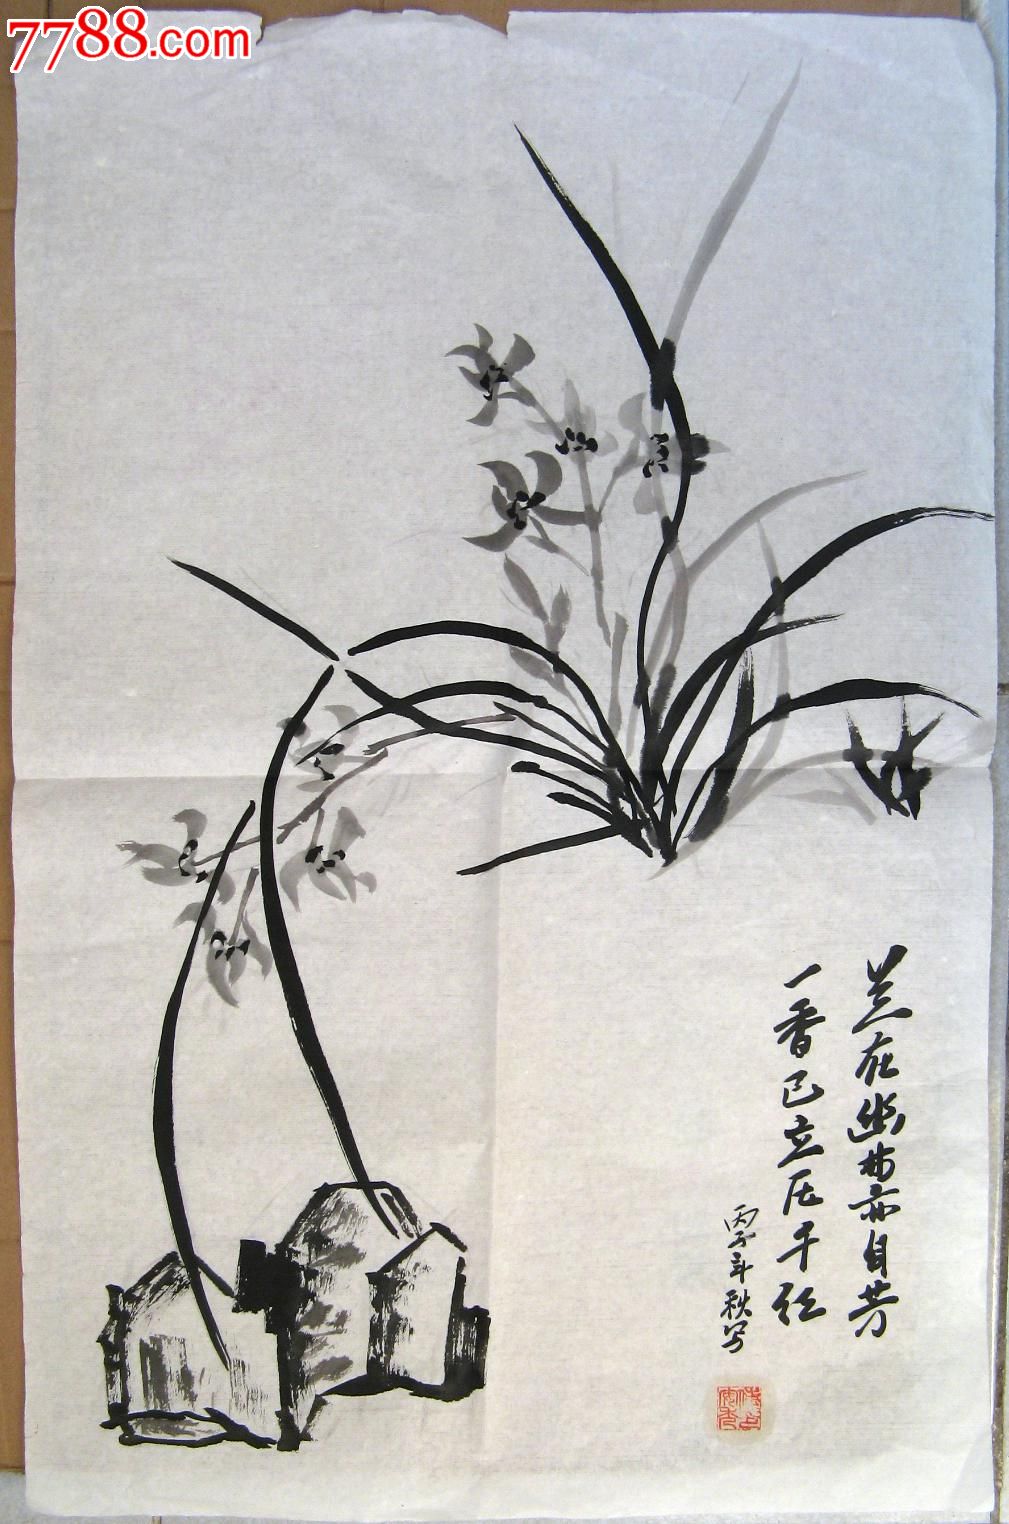 7788.com
兰在幽林亦自芳
一香已立压千红
丙子年秋写